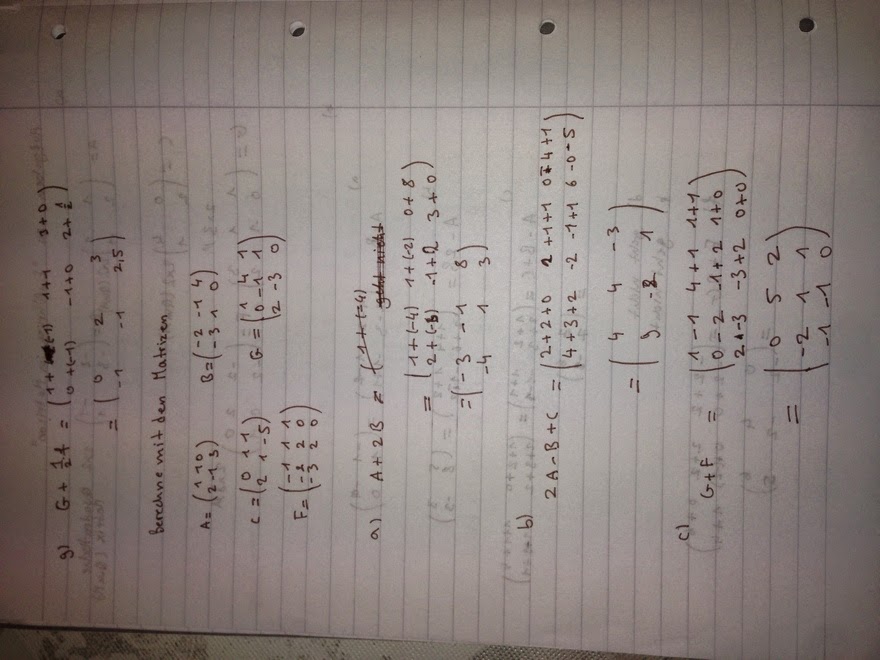 g) G + ½ A = (1+(-1) 1+1 3+0)
(0+(-1) -1+0 2+½)
= (0 2 3)
(-1 -1 2,5)
Berechne mit den Matrizen
A=(1 1 0) B=(-2 -1 4)
(2 -1 3) (-3 1 0)
C=(0 1 1) G=(1 4 1)
(2 1 -5) (0 -1 1)
(2 -3 0)
F=(-1 1 1)
(-2 2 0)
(-3 2 0)
a) A + 2B =
= (1+(-4) 1+(-2) 0+8)
(2+(-6) -1+2 3+0)
=(-3 -1 8)
(-4 1 3)
b) 2A-B+C = (2+2+0 2+1+1 0-4+1)
(4+3+2 -2-1+1 6-0-5)
= (4 4 -3)
(9 -2 1)
c) G+F = (1-1 4+1 1+1)
(0-2 -1+2 1+0)
(2-3 -3+2 0+0)
= (0 5 2)
(-2 1 1)
(-1 -1 0)